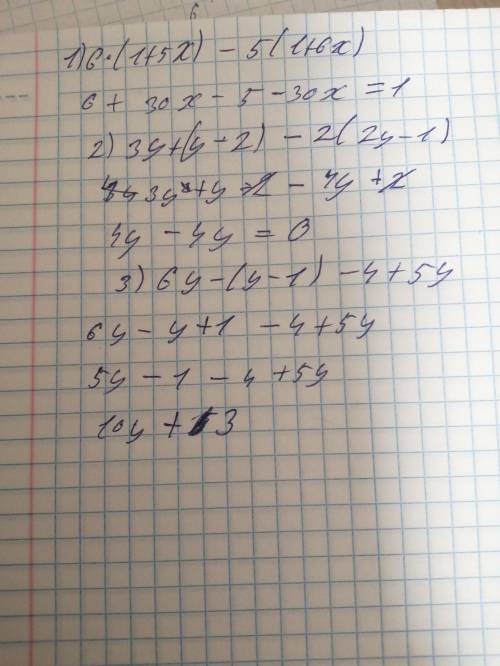 6
1) 6·(1+5x) - 5(1+6x)
6 + 30x - 5 - 30x = 1
2) 3y+(y-2) - 2(2y-1)
3y+y-2 - 4y+2
4y - 4y = 0
3) 6y-(y-1) - 4+5y
6y - y+1 - 4+5y
5y - 1 - 4 +5y
10y + 3